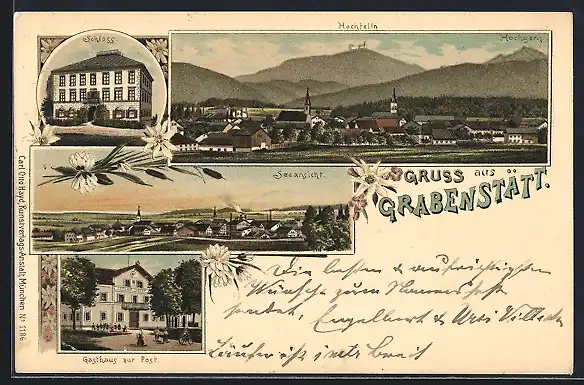 Hochfelln
Schloss.
Hochgern
GRUSS aus
GRABENSTÄTT.
Seeansicht.
Die besten & aufrichtigsten
Wünsche zum Namensfeste
sendet, Engelbert &
ist nicht breit
Gasthaus zur Post.
Carl Otto Hayd, Kunstverlags-Anstalt, München No 1186